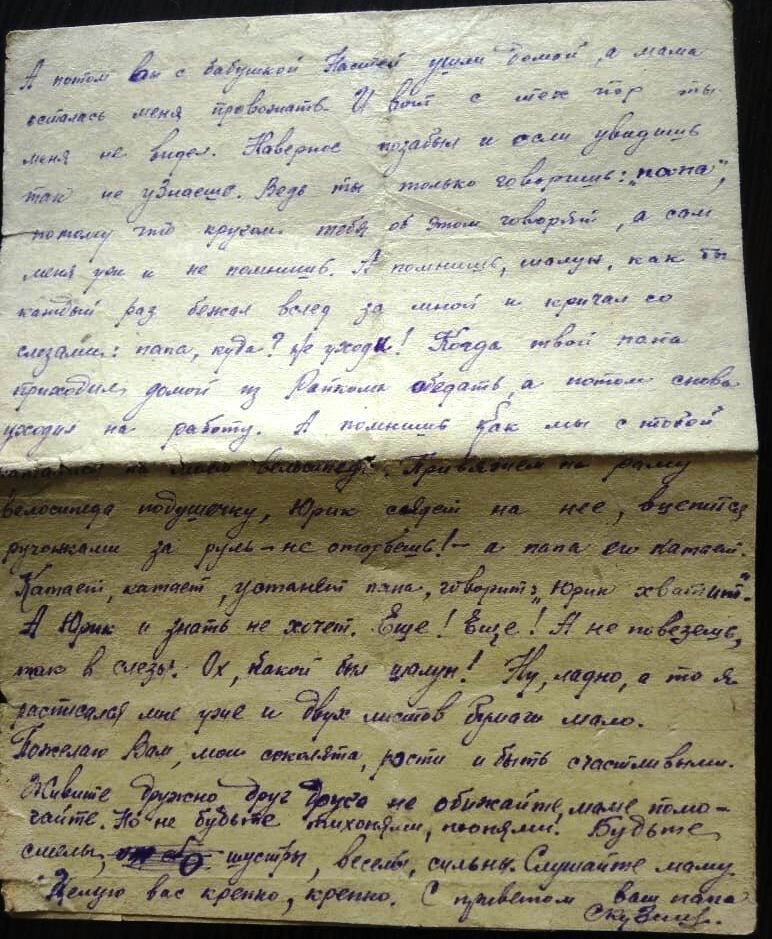 А потом вы с бабушкой Настей ушли домой, а мама
осталась меня провожать. И вот с тех пор ты
меня не видел. Наверное позабыл и если увидишь
так не узнаешь. Ведь ты только говоришь: "папа",
потому что кругом тебя об этом говорят, а сам
меня уж и не помнишь. А помнишь, шалун, как ты
каждый раз бежал вслед за мной и кричал со
слезами: папа, куда? не уходи! Когда твой папа
приходил домой из Райкома обедать, а потом снова
уходил на работу. А помнишь как мы с тобой
катались на моем велосипеде. Привяжем на раму
велосипеда подушечку, Юрик сядет на нее, вцепится
ручонками за руль – не оторвешь! – а папа его катает.
Катает, катает, устанет папа, говорит: "Юрик хватит".
А Юрик и знать не хочет. Еще! Еще! А не повезешь,
так в слезы. Ох, какой был шалун! Ну, ладно, а то я
расписался мне уже и двух листов бумаги мало.
Пожелаю Вам, мои соколята, расти и быть счастливыми.
Живите дружно друг друга не обижайте, маме помо-
гайте. Но не будьте тихонями, Будьте
смелы, шустры, веселы, сильны. Слушайте маму.
Целую вас крепко, крепко. С приветом ваш папа